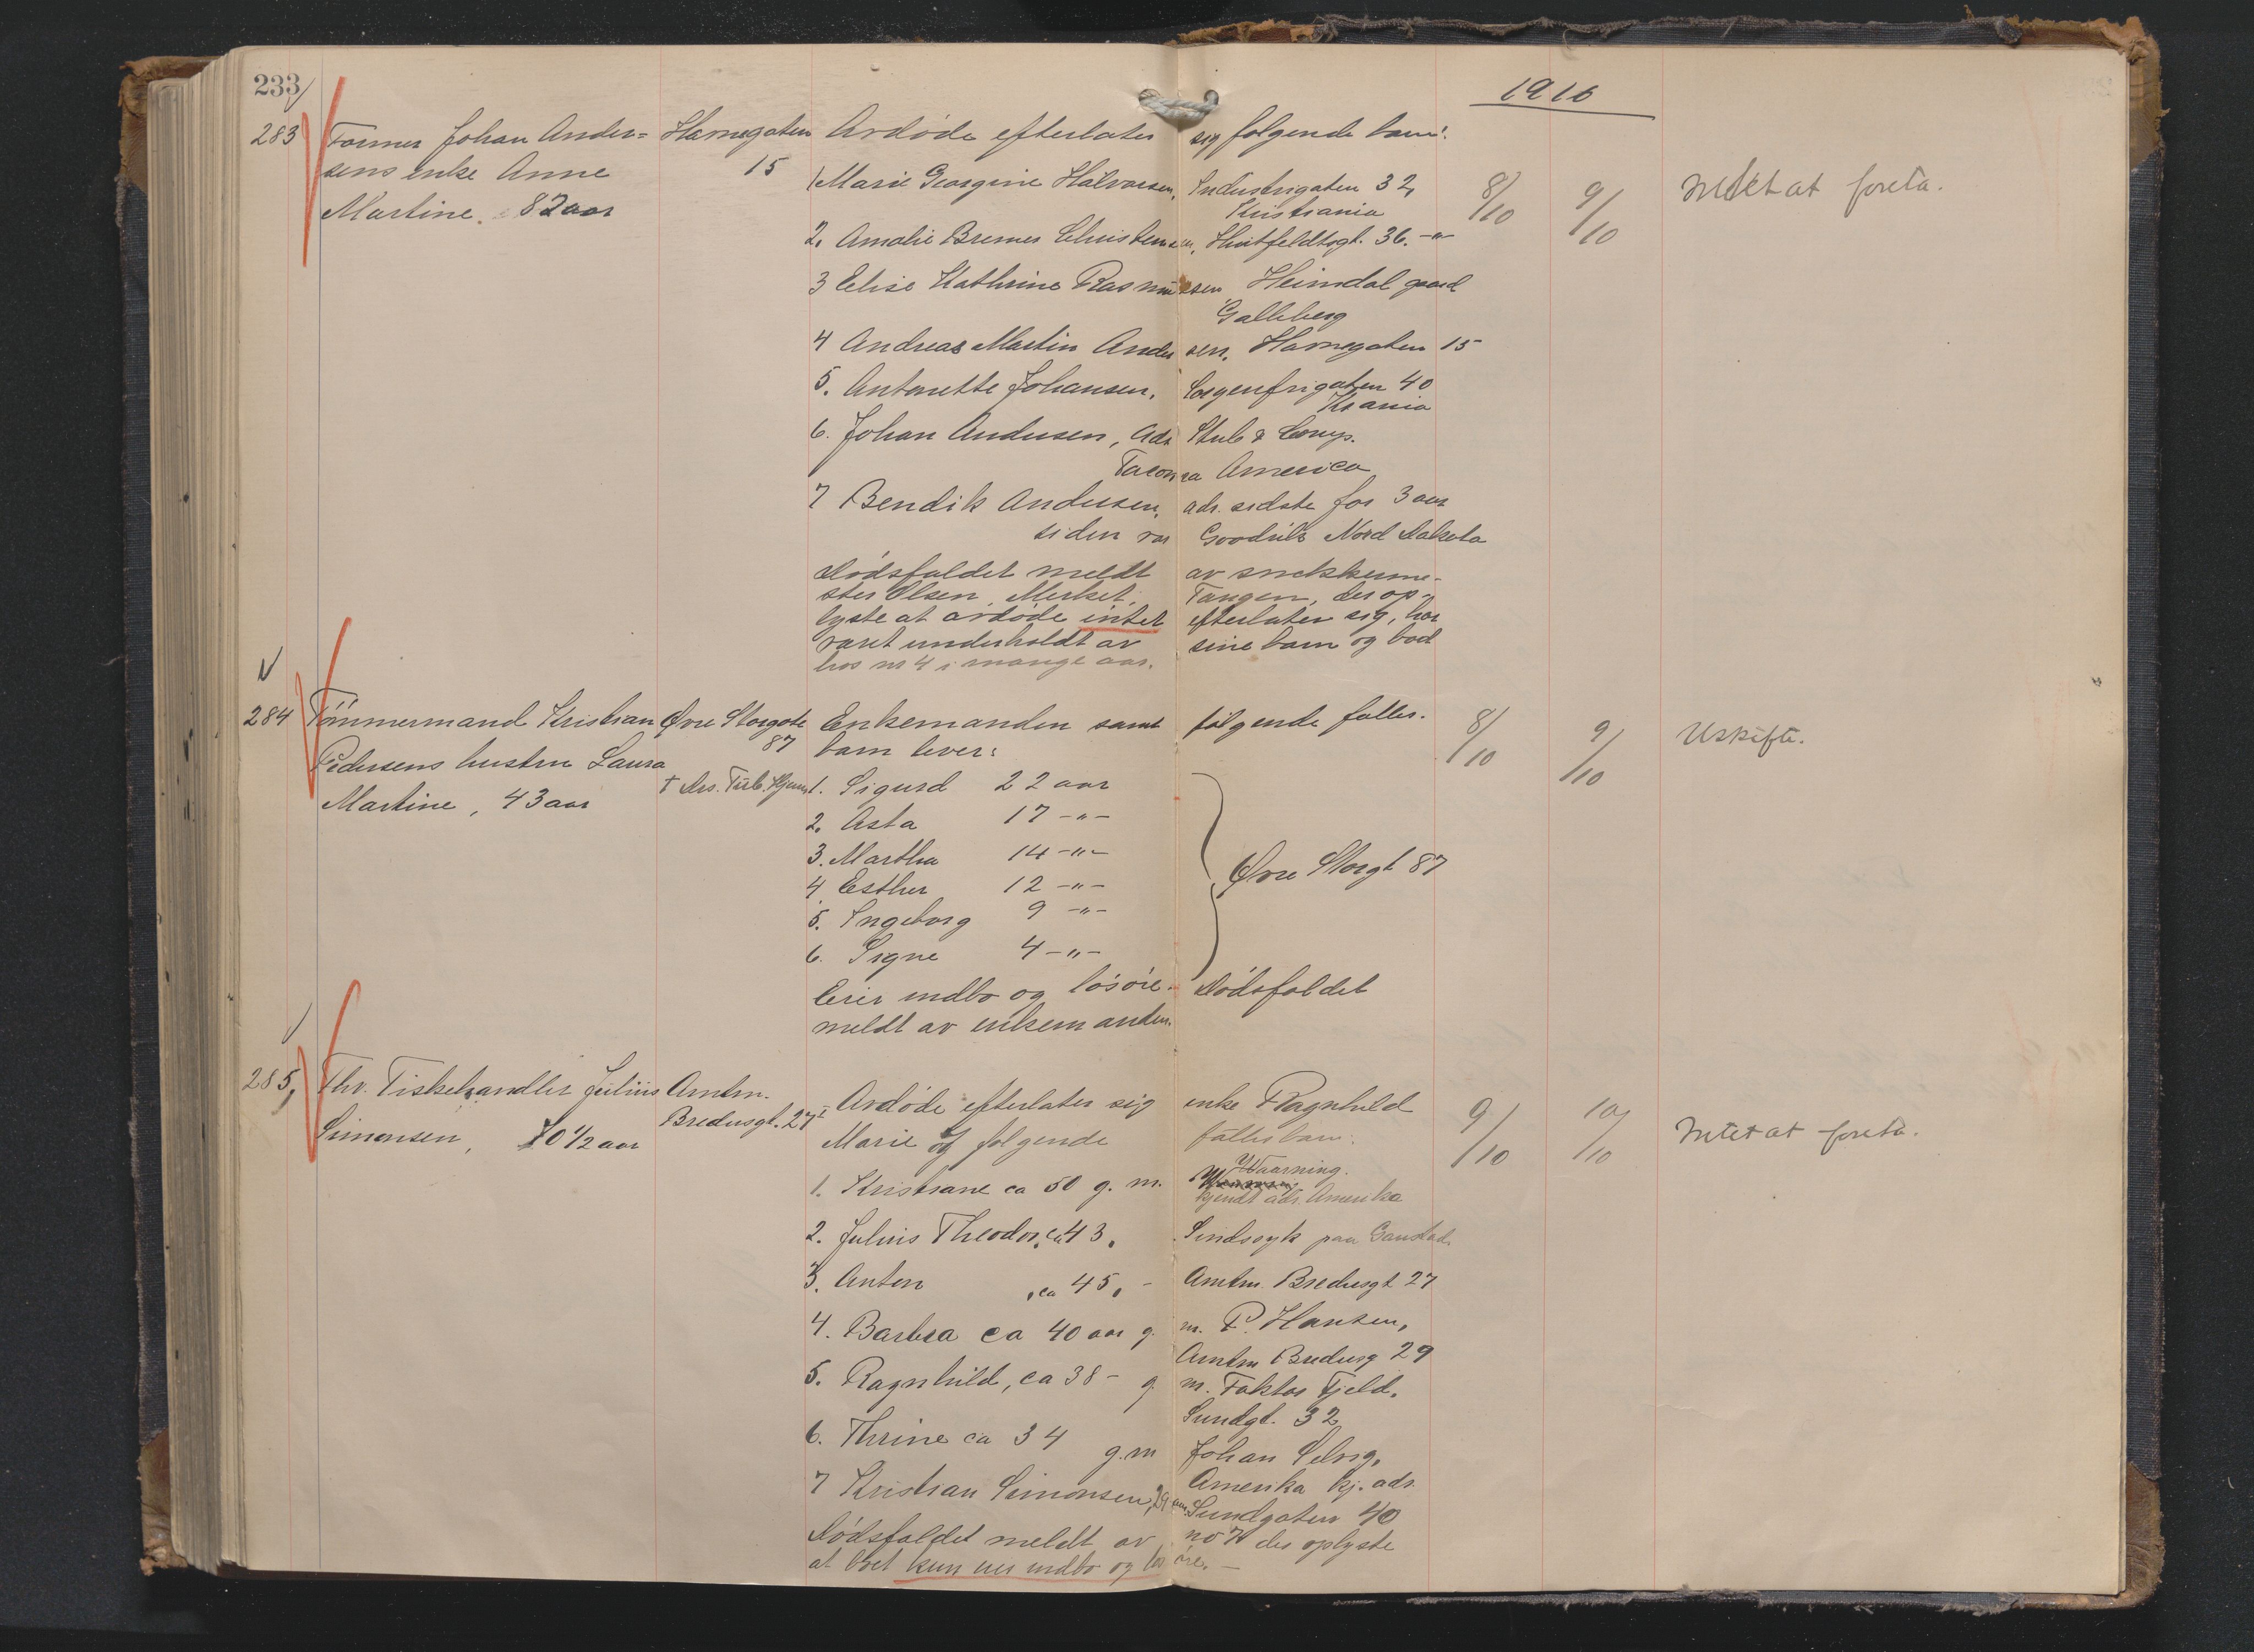 233
1916
283 Former Johan Ander= Havnegaten Avdøde efterlater sig følgende barn:
sens enke Anne 15
Martine. 82 aar
1 Marie Georgine Halvorsen, Industrigaten 32, 8/10 9/10 Intet at foreta.
Kristiania
2. Amalie Bremer Christensen, Huitfeldtsgt. 36. -"-
3 Elise Kathrine Rasmussen Heimdal gaard
Galleberg
4 Andreas Martin Andersen, Havnegaten 15
5. Antonette Johansen, Sorgenfrigaten 40
Krania
6. Johan Andersen, Adr Stub & Comp.
Tacoma America
7 Bendik Andersen, adr. sidste for 3 aar
siden var Goodrik Nord Dakota
Dødsfaldet meldt av snekkerme-
ster Olsen, Merket, Tangen, der op-
lyste at avdøde intet efterlater sig, har
været underholdt av sine barn og bod
hos nr 4 i mange aar.
284 Tömmermand Kristian Øvre Storgate Enkemanden samt følgende fælles- 8/10 9/10 Uskifte.
Pedersens hustru Laura 87 barn lever:
Martine, 43 aar † Drs. Tub. Hjem
1. Sigurd 22 aar
2. Asta 17 -"-
3. Martha 14 -"-
4 Esther 12 -"- Øvre Storgt 87
5. Ingeborg 9 -"-
6. Signe 4 -"-
Eier indbo og løsøre. Dødsfaldet
meldt av enkemanden.
285, Fhv. Fiskehandler Julius Amtm. Avdøde efterlater sig enke Ragnhild 9/10 10/10 Intet at foreta.
Simonsen, 70 1/2 aar Bredesgt. 27 Marie og følgende fællesbarn:
1. Kristiane ca 50 g. m. Waarning.
kjendt adr. Amerika
2. Julius Theodor, ca 43, Sindssyk paa Gaustad.
3. Anton, ca 45, - Amtm. Bredesgt 27
4. Barbra ca 40 aar g. m. P. Hansen,
Amtm Bredesg 29
5. Ragnhild, ca 38 - g. m. Faktor Fjeld.
Sundgt. 32
6. Thrine ca 34 g. m Johan Selvig,
Amerika kj. adr.
7 Kristian Simonsen, 29 aar Sundgaten 40
Dødsfaldet meldt av no 7 der oplyste
at boet kun eier indbo og løsøre. -